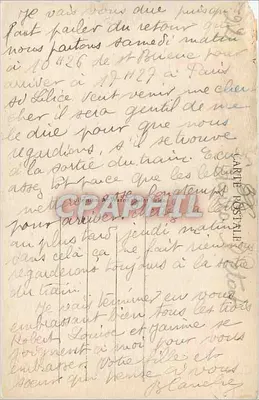 Je vais vous dire puisqu'il
faut parler du retour que
nous partons samedi matin
à 10H26 de St Brieuc pour
arriver à 17H27 à Paris
si Lilice veut venir me cher
cher il sera gentil de me
le dire pour que nous
regardions, s'il se trouve
à la sortie du train. Ecrire
assez tôt parce que les lettres
mettent longtemps
pour
au plus tard jeudi matin
sans cela ça ne fait rien nous
regarderons toujours à la sortie
du train.
Je vais terminer en vous
embrassant bien tous les trois
Robert, Louise et Jeanine se
joignent à moi pour vous
embrasser. Votre fille et
sœur qui pense à vous
Blanche
CARTE POSTALE
CPAPHIL